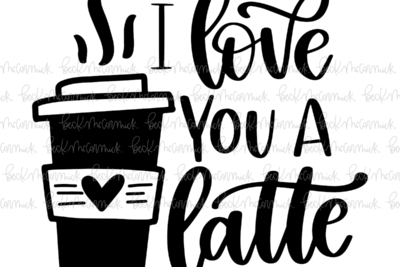 I love
YOU A
latte